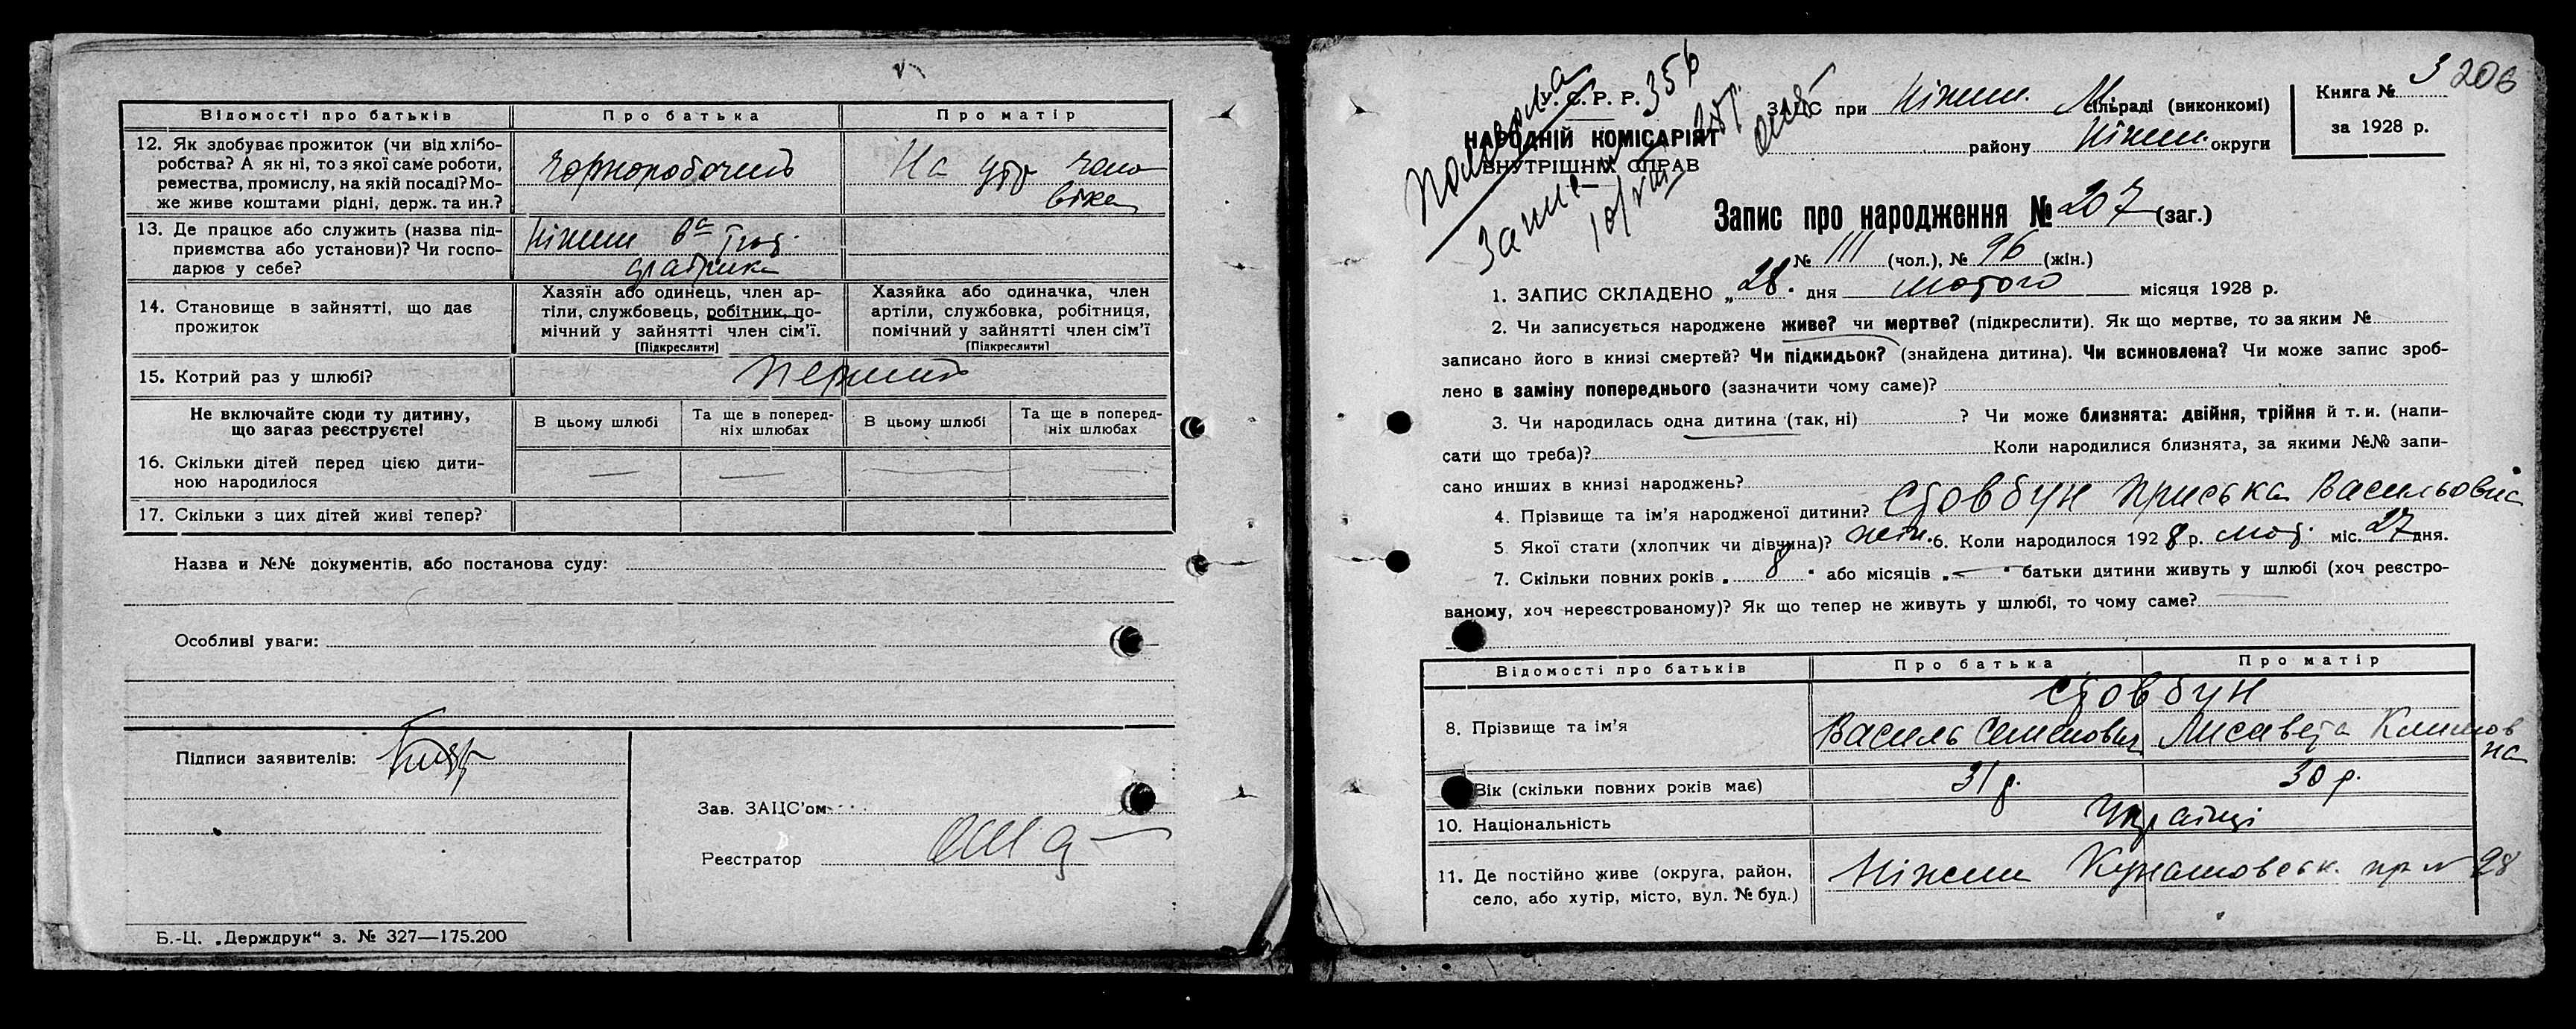 Відомості про батьків
Про батька
Про матір
12. Як здобуває прожиток (чи від хлібо-
робства? А як ні, то з якої саме роботи,
ремества, промислу, на якій посаді? Мо-
же живе коштами рідні, держ. та ин.?
Чорноробочий
На утр чоло
віка
13. Де працює або служить (назва під-
приємства або установи)? Чи госпо-
дарює у себе?
Ніжин
14. Становище в зайнятті, що дає
прожиток
Хазяїн або одинець, член ар-
тіли, службовець, робітник, по-
мічний у зайнятті член сім'ї.
[Підкреслити]
Хазяйка або одиначка, член
артіли, службовка, робітниця,
помічний у зайнятті член сім'ї
[Підкреслити]
15. Котрий раз у шлюбі?
перший
Не включайте сюди ту дитину,
що загаз реєструєте!
В цьому шлюбі
Та ще в поперед-
ніх шлюбах
В цьому шлюбі
Та ще в поперед-
ніх шлюбах
16. Скільки дітей перед цією дити-
ною народилося
— — — —
17. Скільки з цих дітей живі тепер?
Назва и №№ документів, або постанова суду:
Особливі уваги:
Підписи заявителів:
Зав. ЗАЦС'ом
Реєстратор
Б.-Ц. „Держдрук“ з. № 327—175.200
У. С. Р. Р.
НАРОДНІЙ КОМІСАРІЯТ
ВНУТРІШНІХ СПРАВ
356
ЗАЦС при Ніжин. М. сільраді (виконкомі)
району Ніжин. округи
Книга № 3
за 1928 р.
206
Запис про народження № 207 (заг.)
№ 111 (чол.), № 96 (жін.)
1. ЗАПИС СКЛАДЕНО „28“ дня лютого місяця 1928 р.
2. Чи записується народжене живе? чи мертве? (підкреслити). Як що мертве, то за яким №
записано його в книзі смертей? Чи підкидьок? (знайдена дитина). Чи всиновлена? Чи може запис зроб-
лено в заміну попереднього (зазначити чому саме)?
3. Чи народилась одна дитина (так, ні) ? Чи може близнята: двійня, трійня й т. и. (напи-
сати що треба)? Коли народилися близнята, за якими №№ запи-
сано инших в книзі народжень?
4. Прізвище та ім'я народженої дитини? Стовбун Приська Васильовна
5. Якої стати (хлопчик чи дівчина)? жін. 6. Коли народилося 1928 р. лют. міс. 27 дня.
7. Скільки повних років „8“ або місяців „—“ батьки дитини живуть у шлюбі (хоч реєстро-
ваному, хоч нереєстрованому)? Як що тепер не живуть у шлюбі, то чому саме?
Відомості про батьків
Про батька
Про матір
8. Прізвище та ім'я
Стовбун
Василь Семенович
Лисавета Климов
на
Вік (скільки повних років має)
31 р.
30 р.
10. Національність
Українці
11. Де постійно живе (округа, район,
село, або хутір, місто, вул. № буд.)
Ніжин Кунашовськ. пр № 28